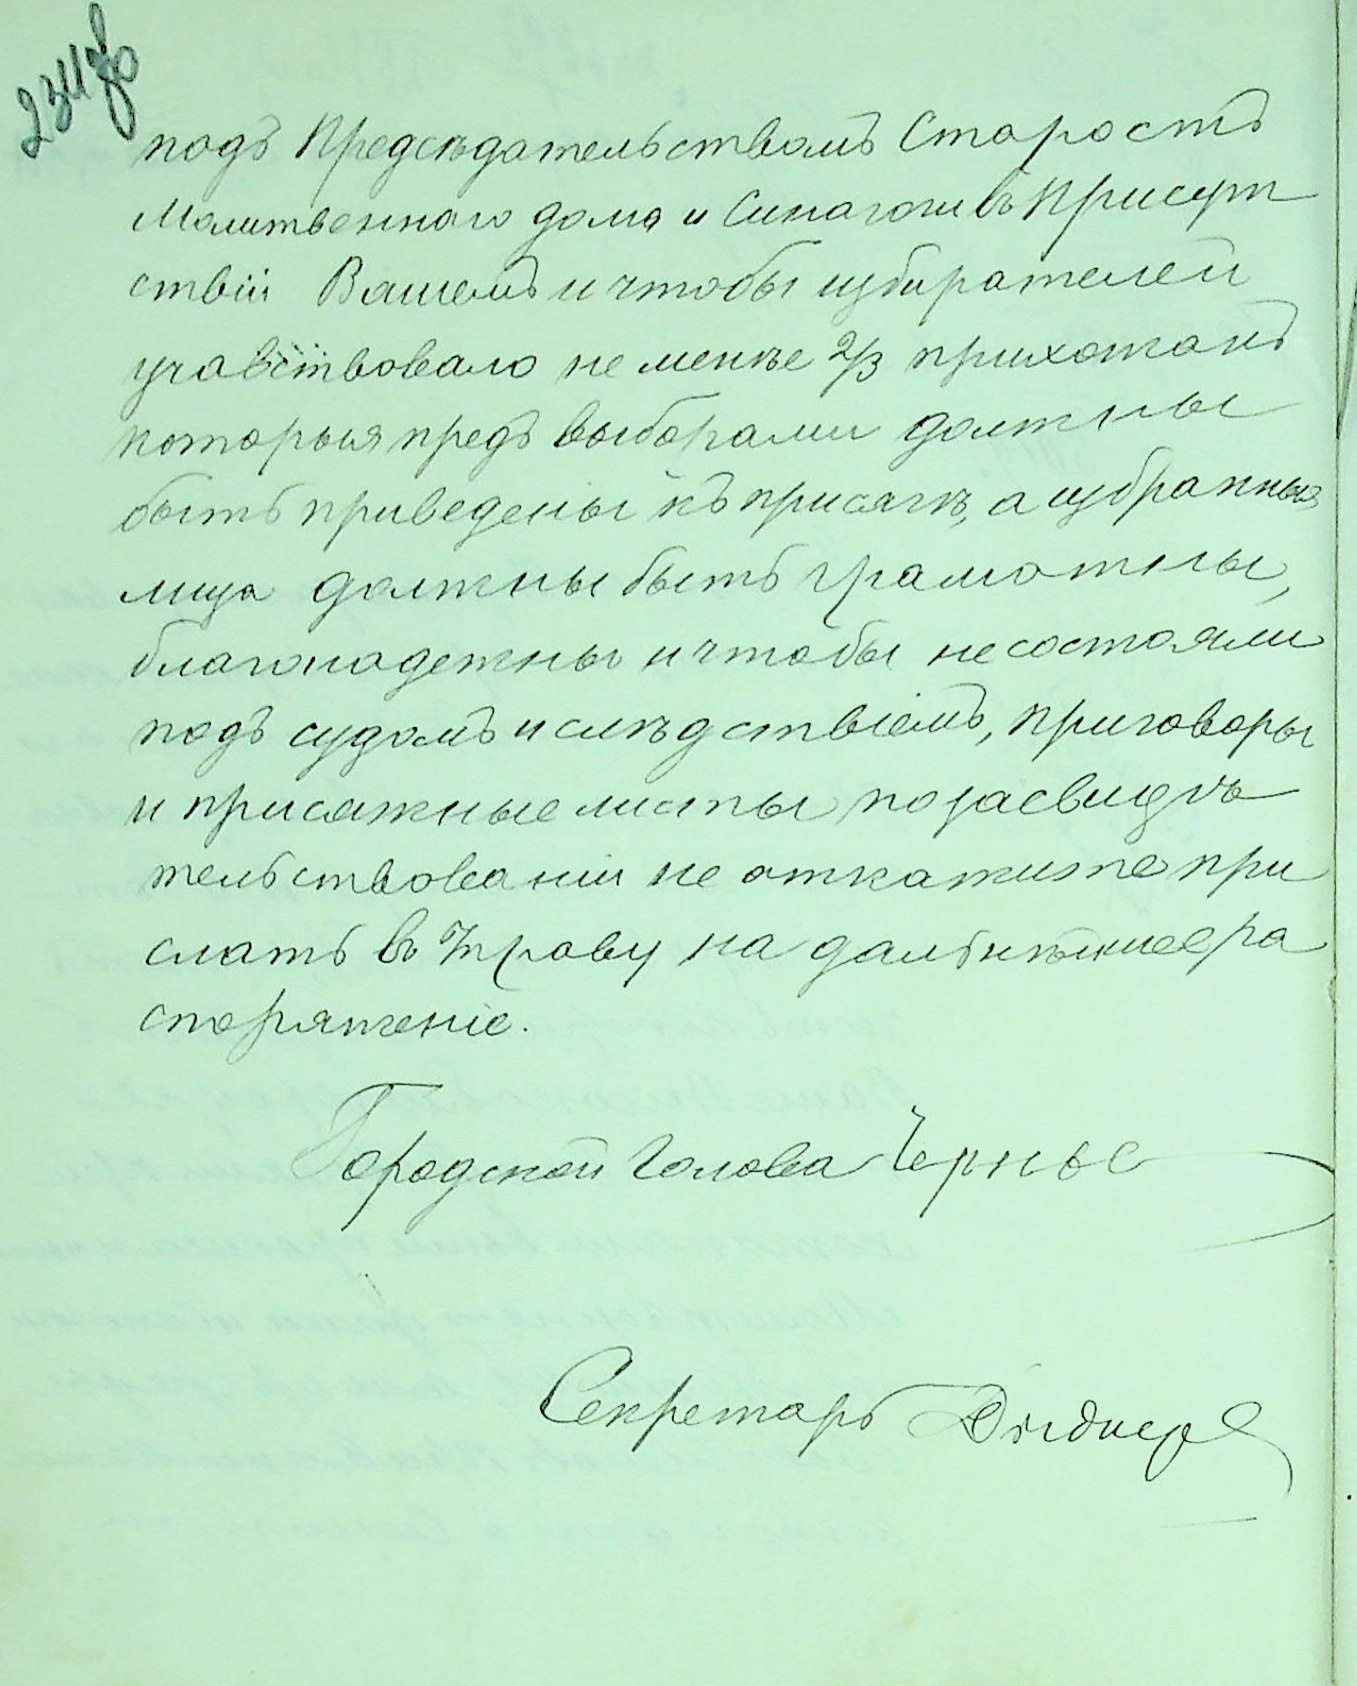 234 об
подъ Предсѣдательствомъ Старостъ
Молитвенного дома и Синагоги въ Присут
ствіи Вашемъ и чтобы избирателей
участвовало не менѣе 2/3 прихожанъ
которыя предъ выборами должны
быть приведены къ присягѣ, а избранныя
лица должны быть грамотны,
благонадежны и чтобы не состояли
подъ судомъ и слѣдствіемъ, приговоры
и присяжные листы по засвидѣ
тельствованіи не откажите при
слать в Управу на дальнѣйшее ра
споряженіе.
Городской Голова
Секретарь